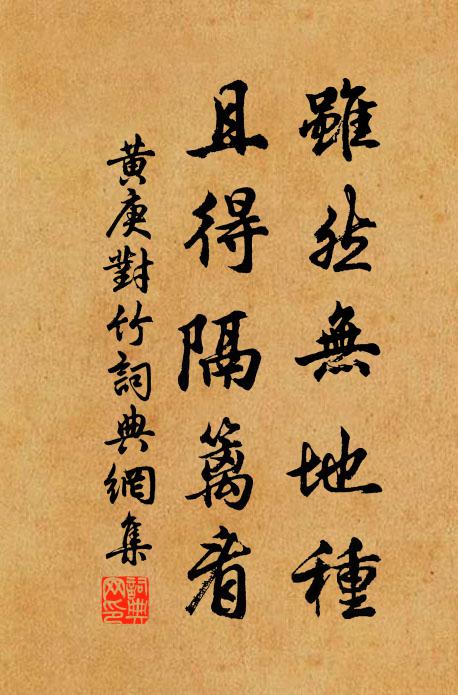 雖然無地種
且得隔籬看
黃庚對竹詞典網集
詞典
网印